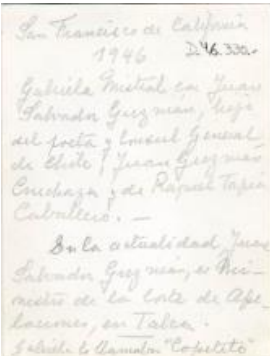 San Francisco de California
1946 D.46.330.-
Gabriela Mistral con Juan
Salvador Guzmán, hijo
del poeta y Consul General
de Chile, Juan Guzmán
Cruchaga y de Raquel Tapia
Caballero. —
En la actualidad, Juan
Salvador Guzmán, es Mi-
nistro de la Corte de Ape-
laciones, en Talca.
Gabriela lo llamaba "Copetito"